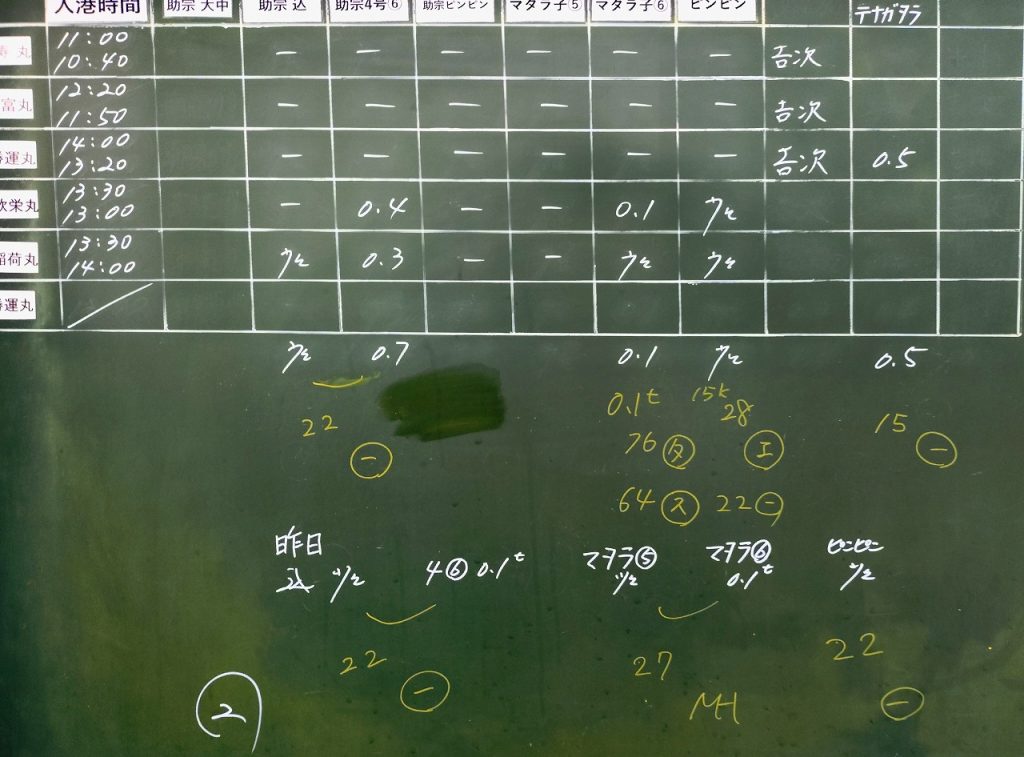 入港時間 助宗 大中 助宗 込 助宗4号⑥ 助宗ピンピン マタラ子⑤ マタラ子⑥ ピンピン テナガタラ
寿丸 11:00 10:40 − − − − − − 吉次
富丸 12:20 11:50 − − − − − − 吉次
勝運丸 14:00 13:20 − − − − − − 吉次 0.5
欣栄丸 13:30 13:00 − 0.4 − − 0.1 ウセ
稲荷丸 13:30 14:00 ウセ 0.3 − − ウセ ウセ
勝運丸
ウセ 0.7 0.1 ウセ 0.5
0.1t 15k
22 76 タ 28 エ 15 一
一 64 ス 22 一
昨日
込 ウセ 4⑥ 0.1t マヲラ⑤ ウセ マヲラ⑥ 0.1t ピンピン ウセ
22 27 22
一 MH 一
2